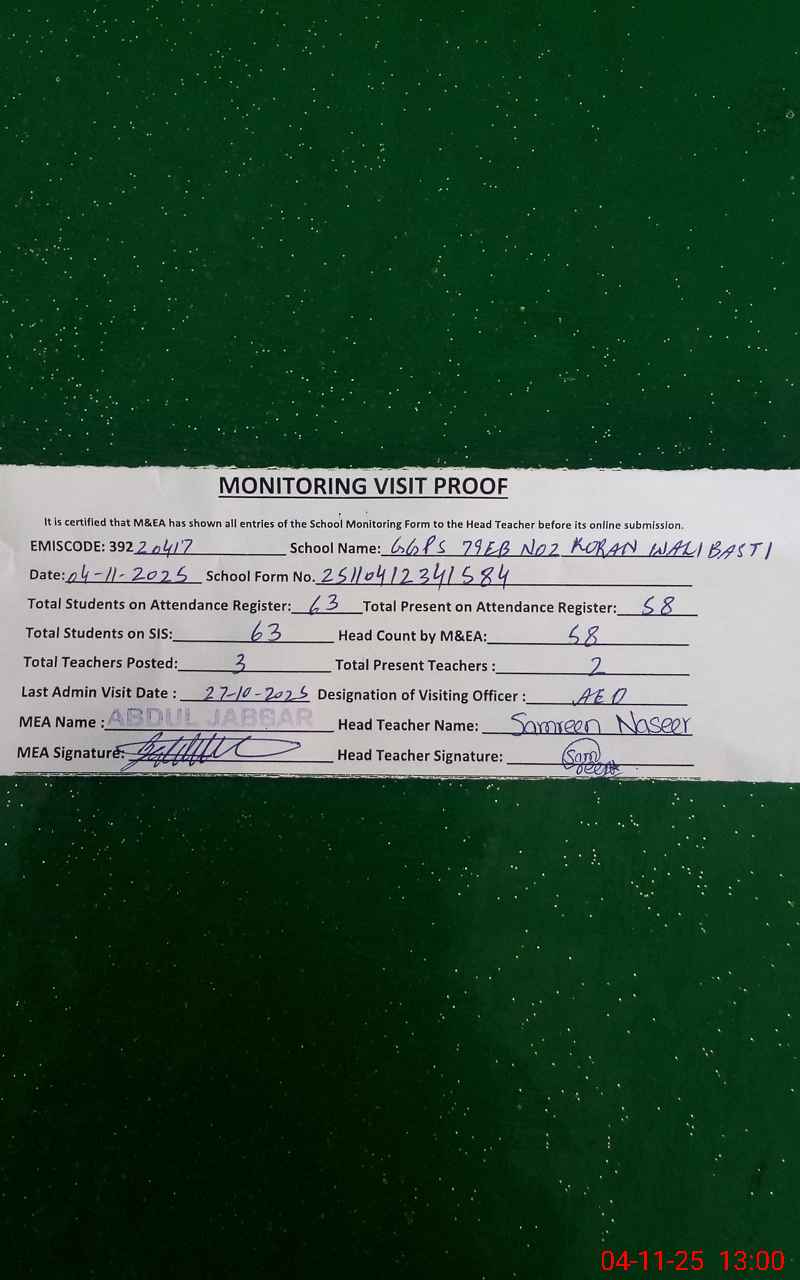 MONITORING VISIT PROOF
It is certified that M&EA has shown all entries of the School Monitoring Form to the Head Teacher before its online submission.
EMISCODE: 39220417 School Name: GGPS 79EB NO2 KORAN WALI BASTI
Date: 04-11-2025 School Form No. 25110412341584
Total Students on Attendance Register: 63 Total Present on Attendance Register: 58
Total Students on SIS: 63 Head Count by M&EA: 58
Total Teachers Posted: 3 Total Present Teachers : 2
Last Admin Visit Date : 27-10-2025 Designation of Visiting Officer : AEO
MEA Name : ABDUL JABBAR Head Teacher Name: Samreen Naseer
MEA Signature: Head Teacher Signature:
04-11-25 13:00